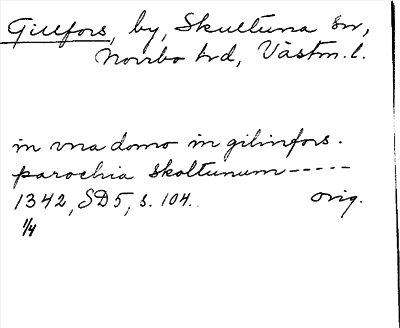 Gillfors, by, Skultuna sn,
Norrbo hd, Västm. l.
in vna domo in gilinfors.
parochia skoltunum -----
1342, SD5, s. 104. orig.
1/4